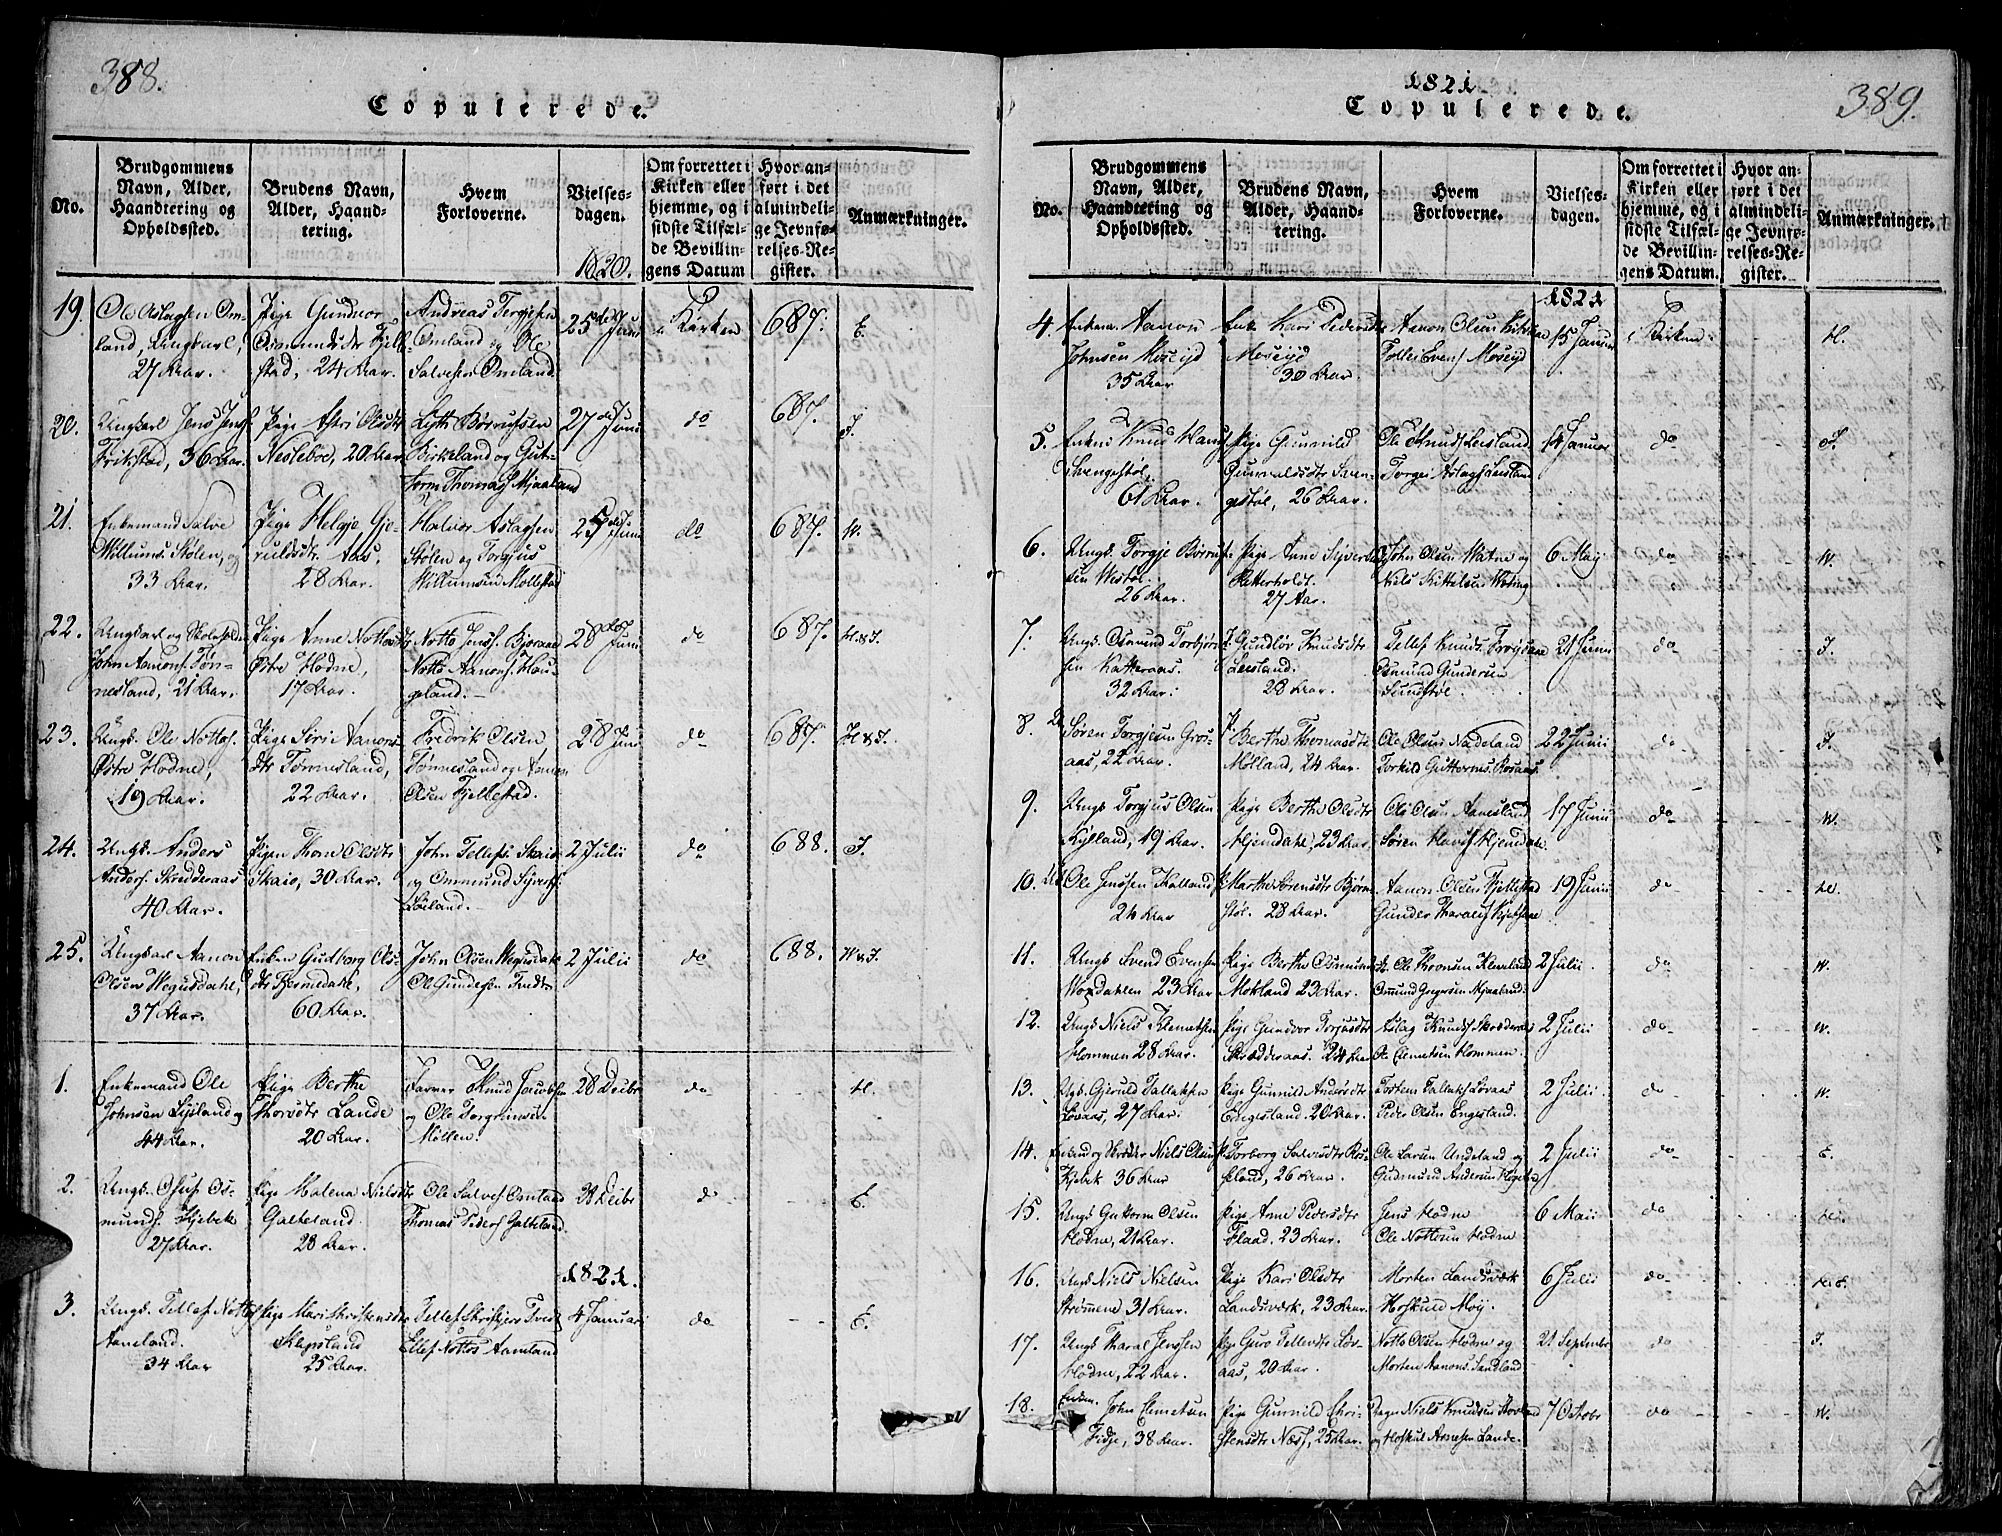 388.
Copulerede.
No.
Brudgommens
Navn, Alder,
Haandtering og
Opholdssted.
Brudens Navn,
Alder, Haand-
tering.
Hvem
Forloverne.
Vielses-
dagen.
1820.
Om forrettet i
Kirken eller
hjemme, og i
sidste Tilfæl-
de Bevillin-
gens Datum
Hvor an-
ført i det
almindeli-
ge Jevnfø-
relses-Re-
gister.
Anmærkninger.
19.
Ole Aslagsen Om-
land, Ungkarl,
27 Aar.
Pige Gunvor
Osmundsdr Fjelle-
stad, 24 Aar.
Andreas Tergjesen
Omland og Ole
Salvesen Omland.
25 Juni
i Kirken
687.
E.
20.
Ungkarl Jens Jens.
Frikstad, 36 Aar.
Pige Astri Olsdtr
Nesleboe, 20 Aar.
Birkeland og Gut-
torm Thomas. Mjaaland
27 Juni
do
687.
I.
21.
Enkemand Salve
Willums. Stølen,
33 Aar.
Pige Helge Gje-
ruldsdtr. Aas,
28 Aar.
Halvor Aslagsen
Stølen og Torgjus
Willumsen Møllestad
25 Juni
do
687.
W.
22.
Ungkarl og Skoleholder
John Aanons. Tøn-
nesland, 21 Aar.
Pige Anne Nottosdtr
Østre Hodne,
17 Aar.
Notto Jenss. Bjoraae
Notto Aanons. Hau-
geland.
28 Juni
do
687.
H. & I.
23.
Ungk. Ole Nottos.
Østre Hodne,
19 Aar.
Pige Siri Aanons-
dtr Tønnesland,
22 Aar.
Fredrik Olsen
Tønnesland og Aanon
Olsen Fjellestad.
28 Juni
do
687.
H & I.
24.
Ungk. Anders
Anders. Skreddereaas
40 Aar.
Pigen Thone Olsdtr
Skaio, 30 Aar.
John Tellefs. Skaio
og Ommund Syverts.
Løiland.
2 Julii
do
688.
I.
25.
Ungkarl Aanon
Olsen Wegusdahl,
37 Aar.
Enken Gudborg Ols-
dtr Hjemdahl,
60 Aar.
John Olsen Wegusdahl
Ole Gundersen Tvedt
2 Julii
do
688.
H & I.
1.
Enkemand Ole
Johnsen Lysland
44 Aar.
Pige Berthe
Thorsdtr Lande
20 Aar.
Farver Knud Jacobsen
og Ole Torgrimsen
Møllen.
28 Decbr
do
H.
2.
Ungk. Osuf Os-
munds. Kjebek
27 Aar.
Pige Malena Nielsdtr
Galteland.
28 Aar.
Ole Salves. Omland
Thomas Peders. Galteland.
29 Decbr
do
E.
1821.
3.
Ungk. Tellef Nottos.
Aaneland.
34 Aar
Pige Mari Christensdtr
Klepsland
25 Aar.
Ellef Nottos. Aamland
4 Januar
do
E.
1821.
Copulerede.
389.
No.
Brudgommens
Navn, Alder,
Haandtering og
Opholdssted.
Brudens Navn,
Alder, Haand-
tering.
Hvem
Forloverne.
Vielses-
dagen.
Om forrettet i
Kirken eller
hjemme, og i
sidste Tilfæl-
de Bevillin-
gens Datum.
Hvor an-
ført i det
almindeli-
ge Jevnfø-
relses-Re-
gister.
Anmærkninger.
1821
4.
Enkem. Aanon
Johnsen Moseiyd
35 Aar
Enke Kari Pedersdtr
Moseiyd
30 Aar.
Tollef Evens. Moseiyd
15 Januar
i Kirken
H.
5.
Enkem. Knud Hans.
Svengestøl,
61 Aar.
Pige Gunnild
Gunvaldsdtr Sven-
gestøl, 26 Aar.
Ole Knuds. Leisland
Torgei Aslags. Leisland
14 Januar
do
I.
6.
Ungk. Torgje Børuf-
sen Westøl.
26 Aar.
Pige Anne Syvertsdtr
Retterholt.
27 Aar.
John Olsen Watne og
Niels Kittelsen
6 Maij
do
W.
7.
Ungk. Osmund Torbjørn-
sen Katteraas.
32 Aar.
P. Gundlør Knudsdtr
Leisland.
28 Aar.
Tellef Knuds. Frøysaae
Osmund Gundersen
Sundstøl.
21 Junii
do
I.
8.
U. Søren Torgjusen Gros-
aas, 22 Aar.
P. Berthe Thomasdtr
Mølland, 24 Aar.
Ole Olsen Nadeland
Torkild Guttorms. Rosaas
22 Junii
do
I.
9.
Ungk. Torgjus Olsen
Kylland, 19 Aar.
Pige Berthe Olsdtr
Hjemdahl, 23 Aar.
Ole Olsen Aanesland
Søren Hans. Hjemdahl.
17 Junii
do
W.
10.
Ole Jensen Kalland
26 Aar
P. Marthe Sørensdtr Bjørn-
støl. 28 Aar.
Aanon Olsen Fjellestad
19 Junii
do
H.
11.
Ungk. Svend Evensen
Wordahlen 23 Aar
Pige Berthe Osmundsdtr
Mokland 23 Aar.
Ole Thronsen Kleveland
Osmund Gregersen Mjaaland.
2 Julii
do
W.
12.
Ungk. Niels Klemetsen
Hommen 28 Aar.
Pige Gundvor Torjusdtr
Skræddereaas. 24 Aar
Aslag Knuds. Skrædereaas
Ole Clemetsen Hommen.
2 Julii
do
W.
13.
Ungk. Gjeruld Tallaksen
Løvaas, 27 Aar.
Pige Gunnild Andersdtr
Engesland. 20 Aar.
Torstein Tallaks. Løvaas
Peder Olsen Engesland.
2 Julii
do
W.
14.
Niels Olsen
Kjebek 36 Aar
P. Torborg Salvesdtr Ros-
seland, 26 Aar.
Ole Larsen Undeland og
Gudmund Andersen
2 Julii
do
E.
15.
Ungk. Guttorm Olsen
Hodne, 21 Aar.
Pige Anne Pedersdtr
Flaad. 23 Aar.
Jens Hodne
Ole Nottosen Hodne
6 Maii
do
H.
16.
Ungk. Niels Nielsen
Strømene 31 Aar.
Pige Kari Olsdtr
Landsværk, 23 Aar.
Morten Landsværk
Hoskuld Moij.
6 Julii
do
17.
Ungk. Tharal Jensen
Hodne, 22 Aar.
Pige Guro Tellevsdtr Løv-
aas, 20 Aar.
Notto Olsen Hodne og
Morten Aanons. Sandland
21 September
do
I.
18.
Enkem. John Clemetsen
Fidje, 38 Aar.
Pige Gunnild Chri-
stensdtr Næss, 25 Aar.
Niels Knudsen Hovland
og Hoskul Arnesen Lande.
7 Octobr
do
W.